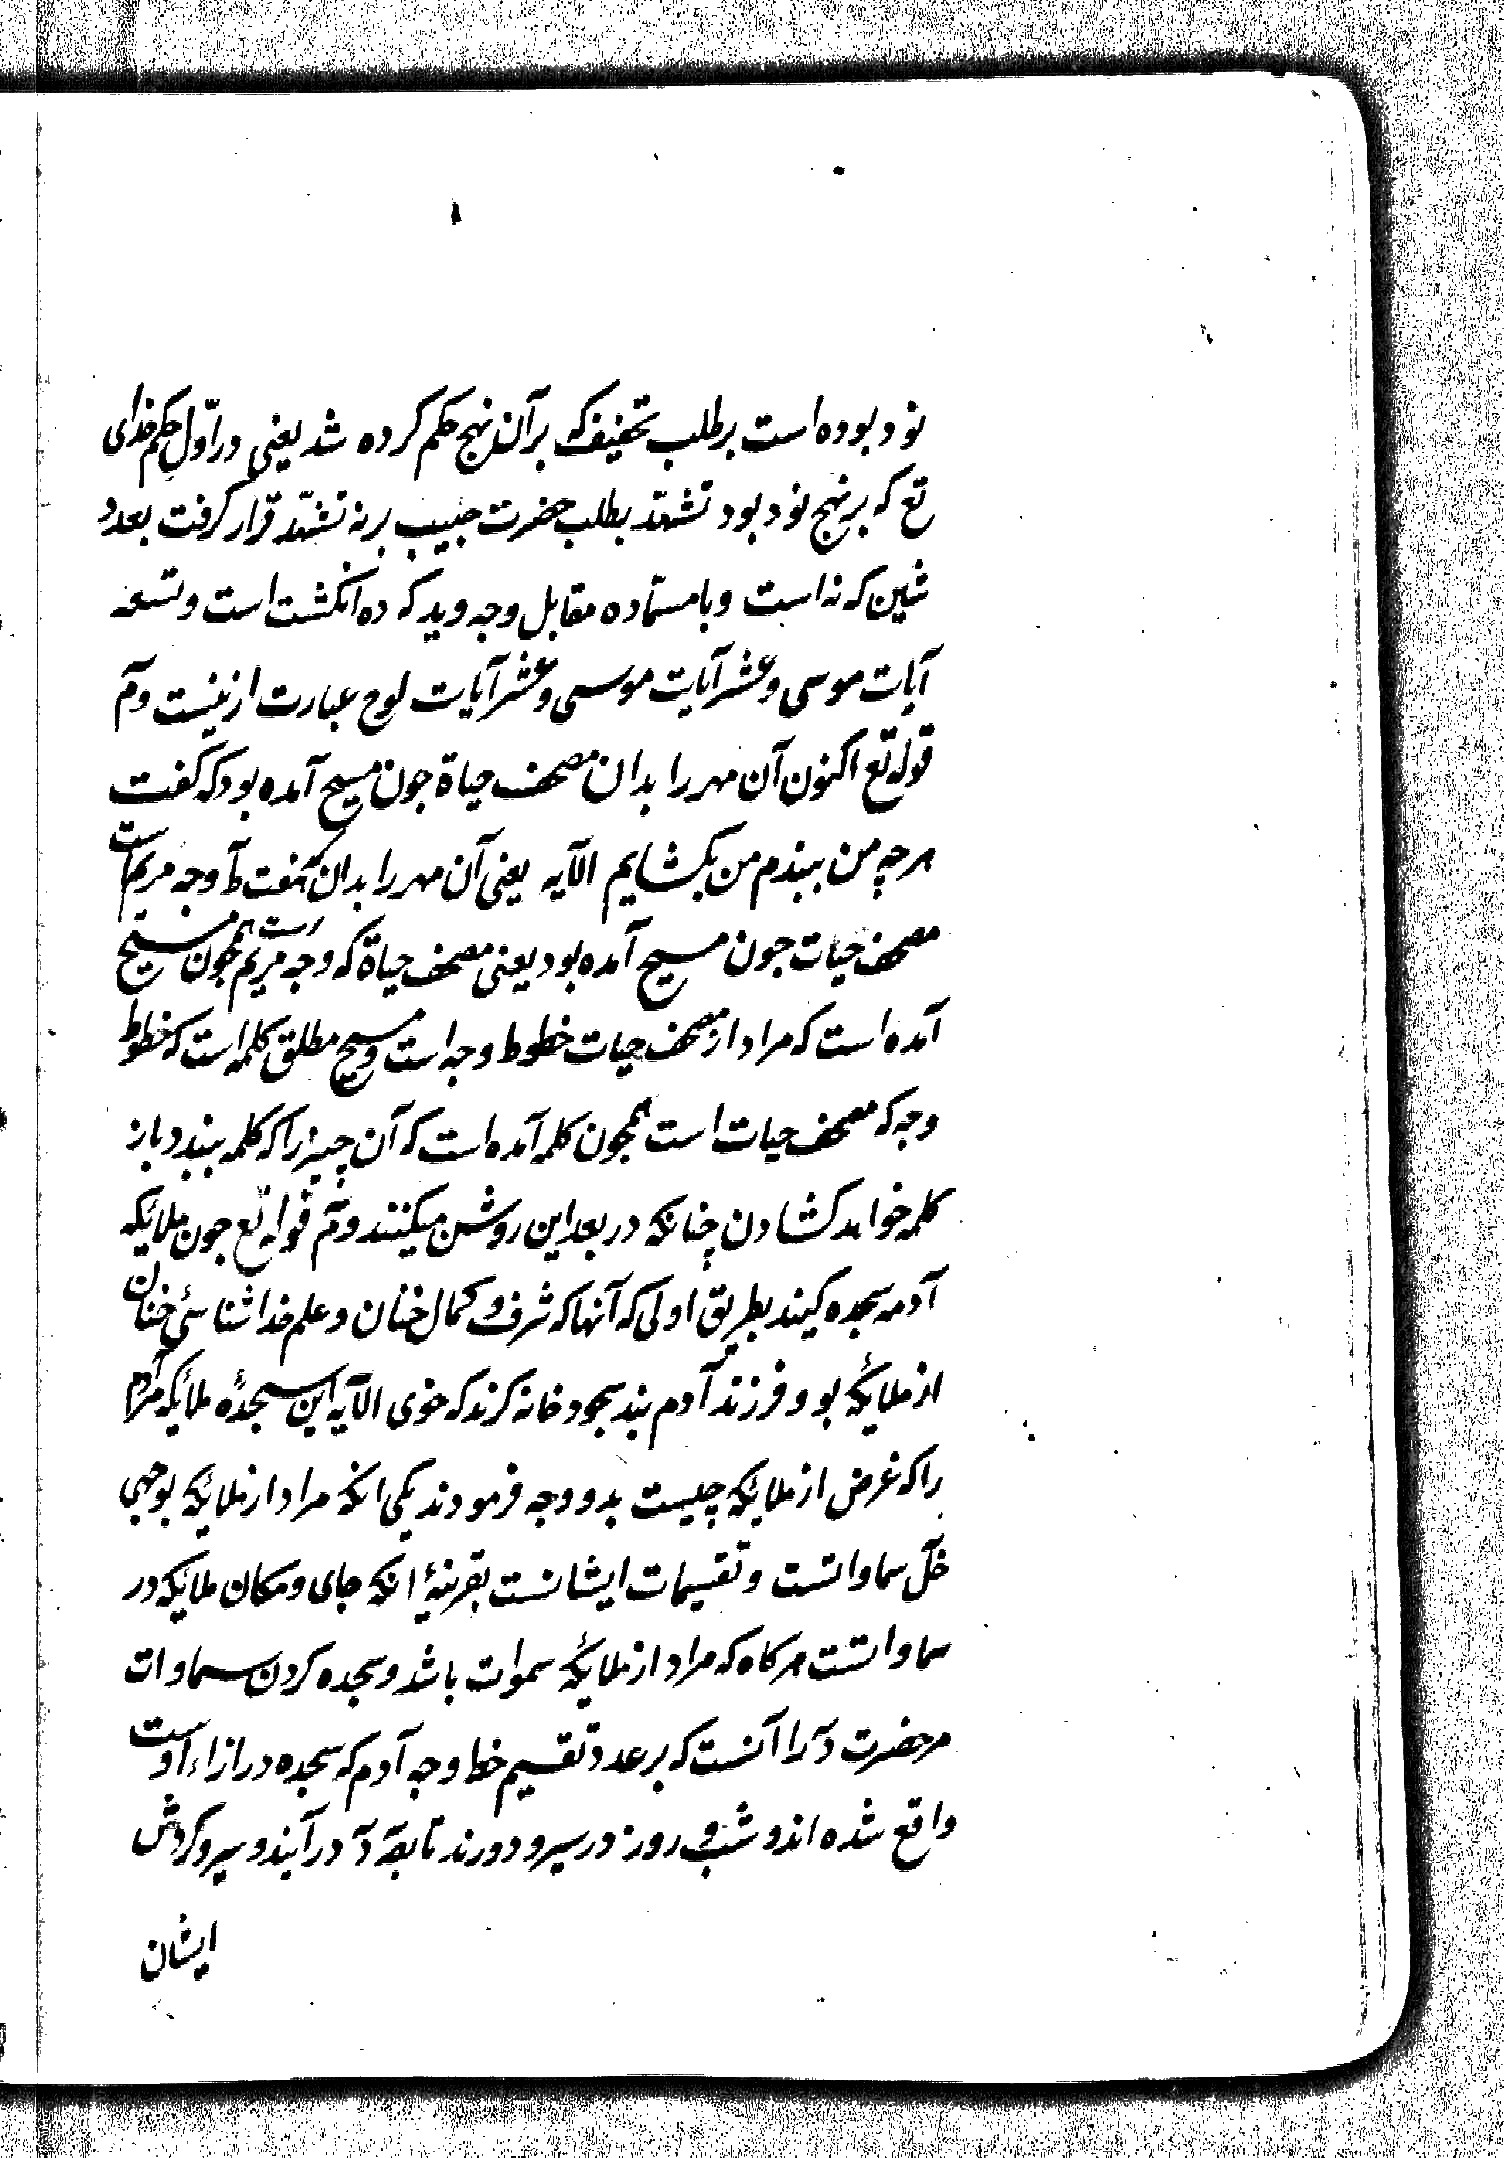 نود بوده است بر طلب تخفیف که بر آن نهج حکم کرده شد یعنی در اوّل حکم خدای
تع که بر نهج نود بود تشهّد بطلب حضرت حبیب بر نه تشهّد قرار کرفت بعدد
شین که نه است و با مستماده مقابل وجه وید که ده انکشت است و تسعه
آیات موسی و عشر آیات موسی و عشر آیات لوح عبارت ازینست و مّ
قوله تع اکنون آن مهر را بدان مصحف حیاة جون مسیح آمده بود که کفت
هر چه من ببندم من بکشایم الآیه یعنی آن مهر را بدان کفت ط آ وجه مریم است
مصحف حیات جون مسیح آمده بود یعنی مصحف حیاة که وجه مریم است همجون مسیح
آمده است که مراد از مصحف حیات خطوط وجه است و مسیح مطلق کلمه است که خطوط
وجه که مصحف حیات است همجون کلمه آمده است که آن چیز را که کلمه ببندد باز
کلمه خواهد کشادن چنانکه در بعد این روشن میکنند و مّ قوله تع جون ملایکه
آدمه سجده کیند بطریق اولی که آنها که شرف و کمال خنان و علم خداشناسئ خنان
از ملایکه بو و فرزند آدم بند سجود خانه کرند که خوی الآیه این سجدهٔ ملایکه مر آدم
را که غرض از ملایکه چیست بدو وجه فرمودند یکی انکه مراد از ملایکه بوجهی
خلّ سماواتست و تقسیمات ایشانست بقرینهٔ انکه جای و مکان ملایکه در
سماواتست هر کاه که مراد از ملایکه سموات باشد و سجده کردن سماوات
مر حضرت دٓ را آنست که بر عدد تقسیم خط وجه آدم که سجده در ازاء اوست
واقع شده اند و شب و روز در سیر و دورند تا بقهٓ دٓ درآیند و سیر و کردش
ایشان